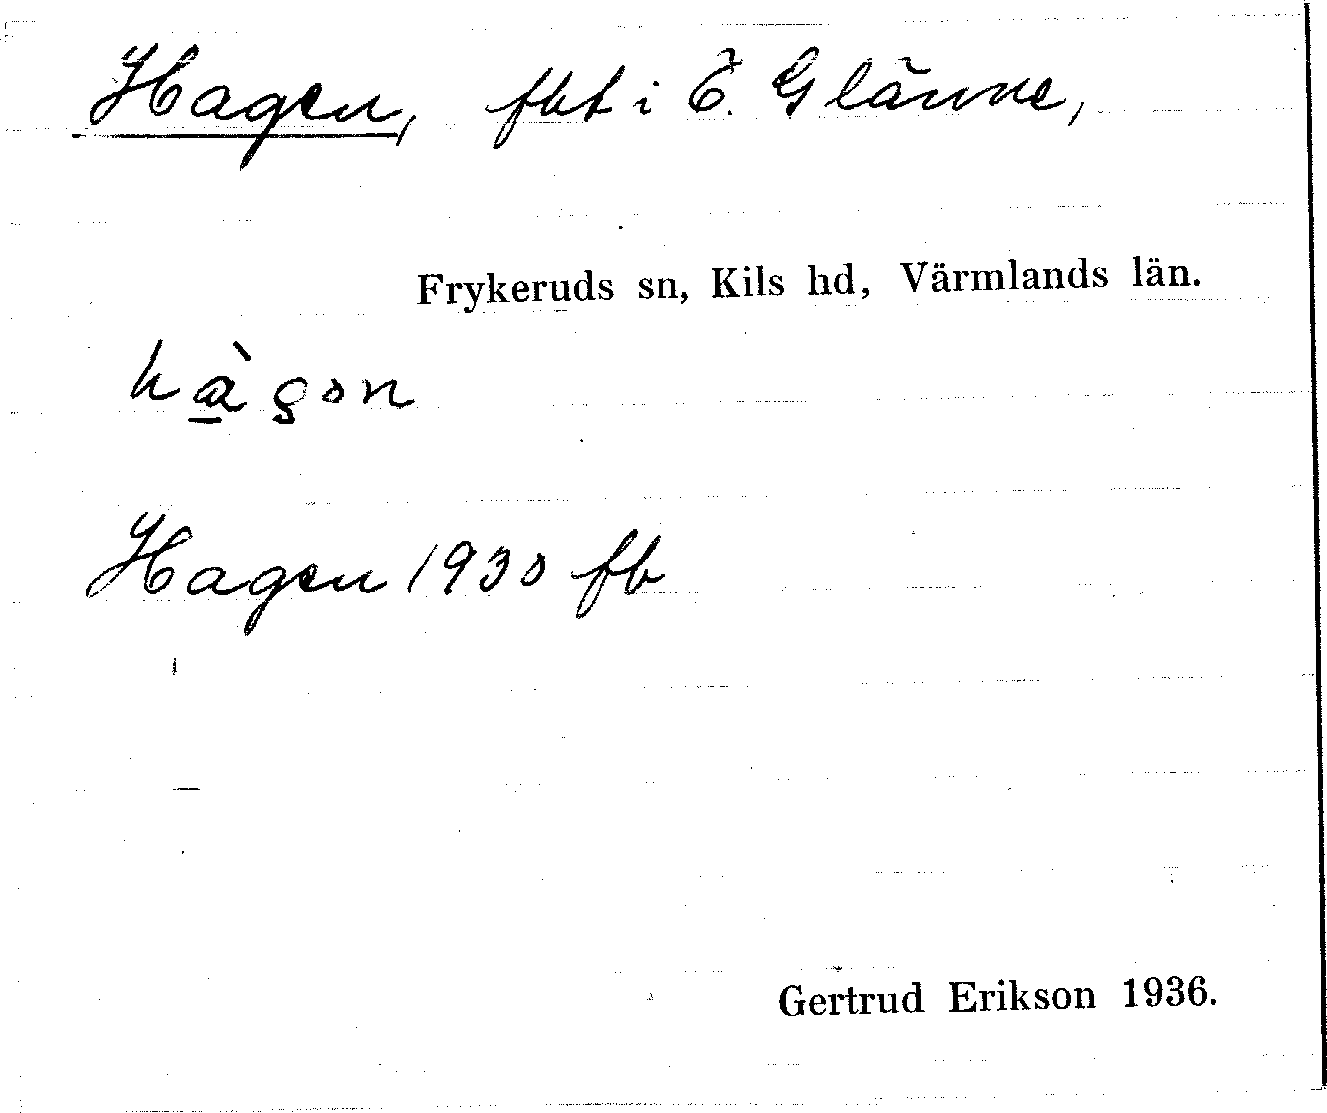 Hagen, fbt i Ö. Glänne,
Frykeruds sn, Kils hd, Värmlands län.
hàgɔn
Hagen 1930 fb
Gertrud Erikson 1936.